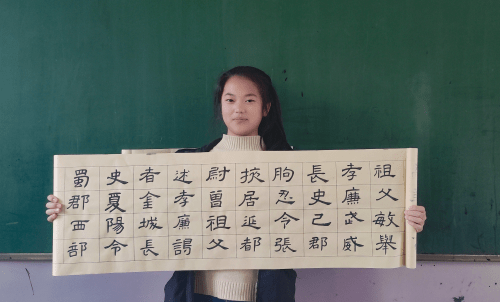 祖父敏舉
孝廉武威
長史巴郡
朐忍令張
掖居延都
尉曾祖父
述孝廉謁
者金城長
史夏陽令
蜀郡西部